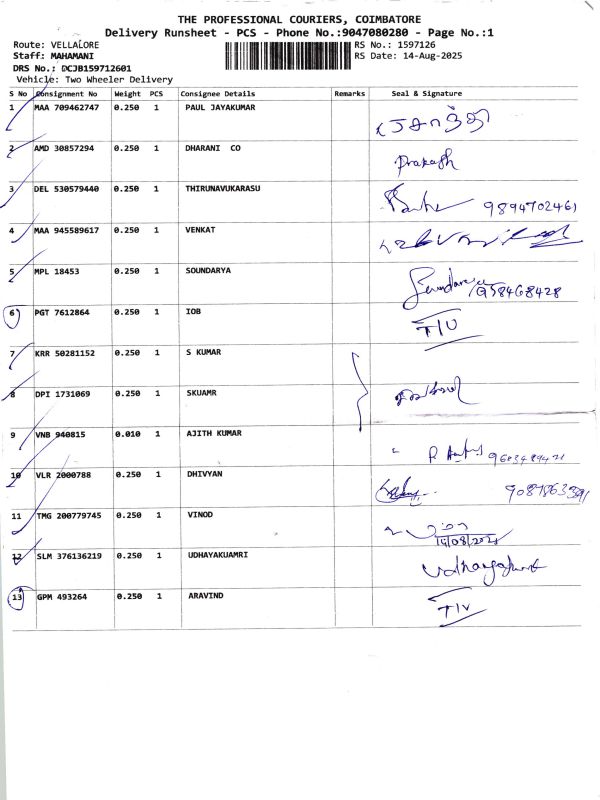 THE PROFESSIONAL COURIERS, COIMBATORE
Delivery Runsheet - PCS - Phone No.:9047080280 - Page No.:1
Route: VELLALORE
RS No.: 1597126
Staff: MAHAMANI
RS Date: 14-Aug-2025
DRS No.: DCJB159712601
Vehicle: Two Wheeler Delivery
S No Consignment No Weight PCS Consignee Details Remarks Seal & Signature
1 MAA 709462747 0.250 1 PAUL JAYAKUMAR
2 AMD 30857294 0.250 1 DHARANI CO Prakash
3 DEL 530579440 0.250 1 THIRUNAVUKARASU 9894702461
4 MAA 945589617 0.250 1 VENKAT
5 MPL 18453 0.250 1 SOUNDARYA Soundarya
6 PGT 7612864 0.250 1 IOB
7 KRR 50281152 0.250 1 S KUMAR
8 DPI 1731069 0.250 1 SKUAMR
9 VNB 940815 0.010 1 AJITH KUMAR
10 VLR 2000788 0.250 1 DHIVYAN
11 TMG 200779745 0.250 1 VINOD
14/08/2025
12 SLM 376136219 0.250 1 UDHAYAKUAMRI
13 GPM 493264 0.250 1 ARAVIND